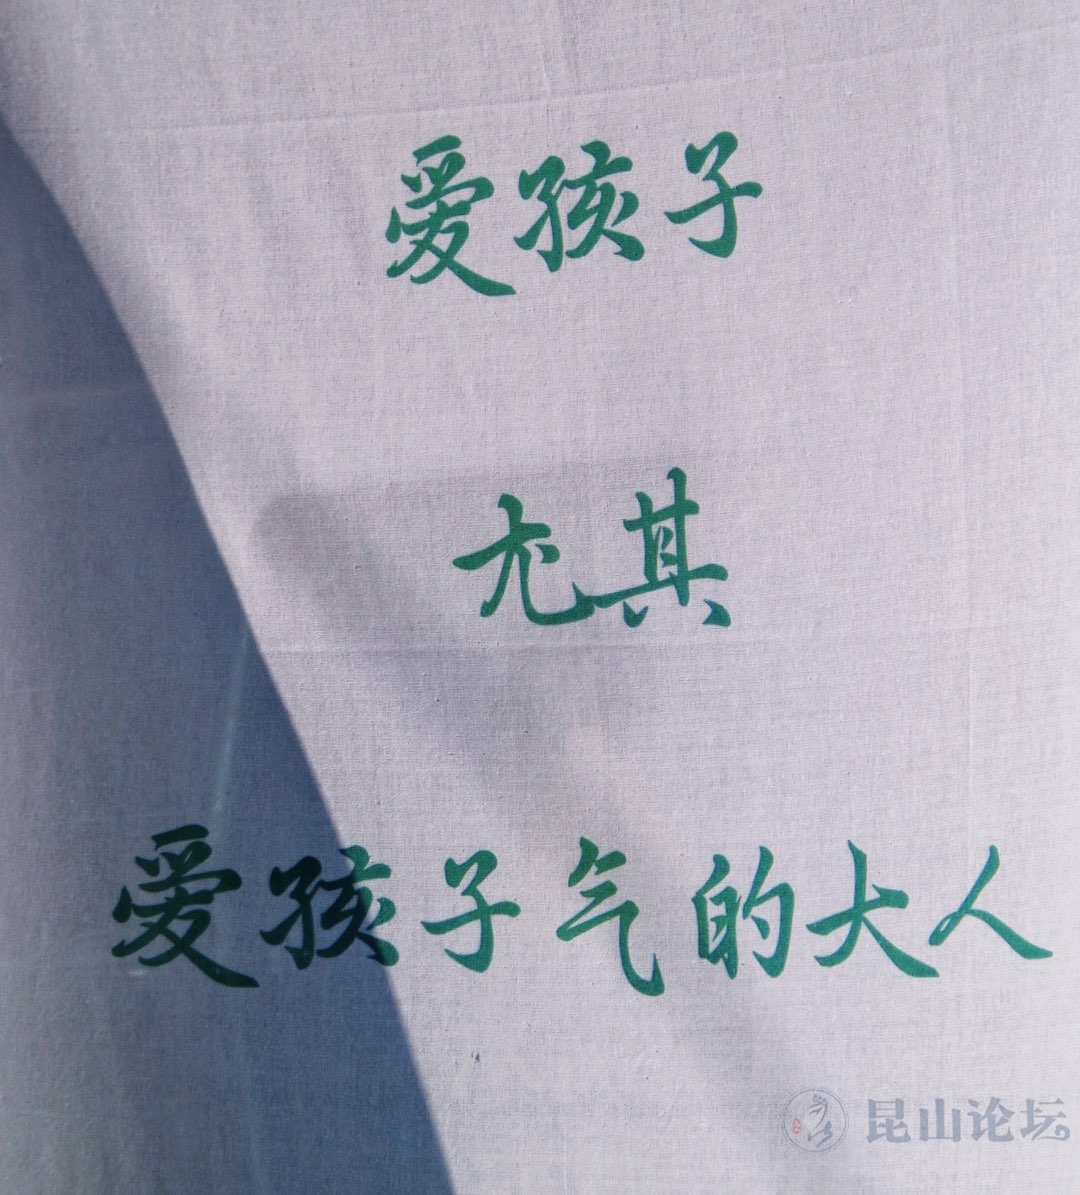 爱孩子
尤其
爱孩子气的大人
昆山论坛